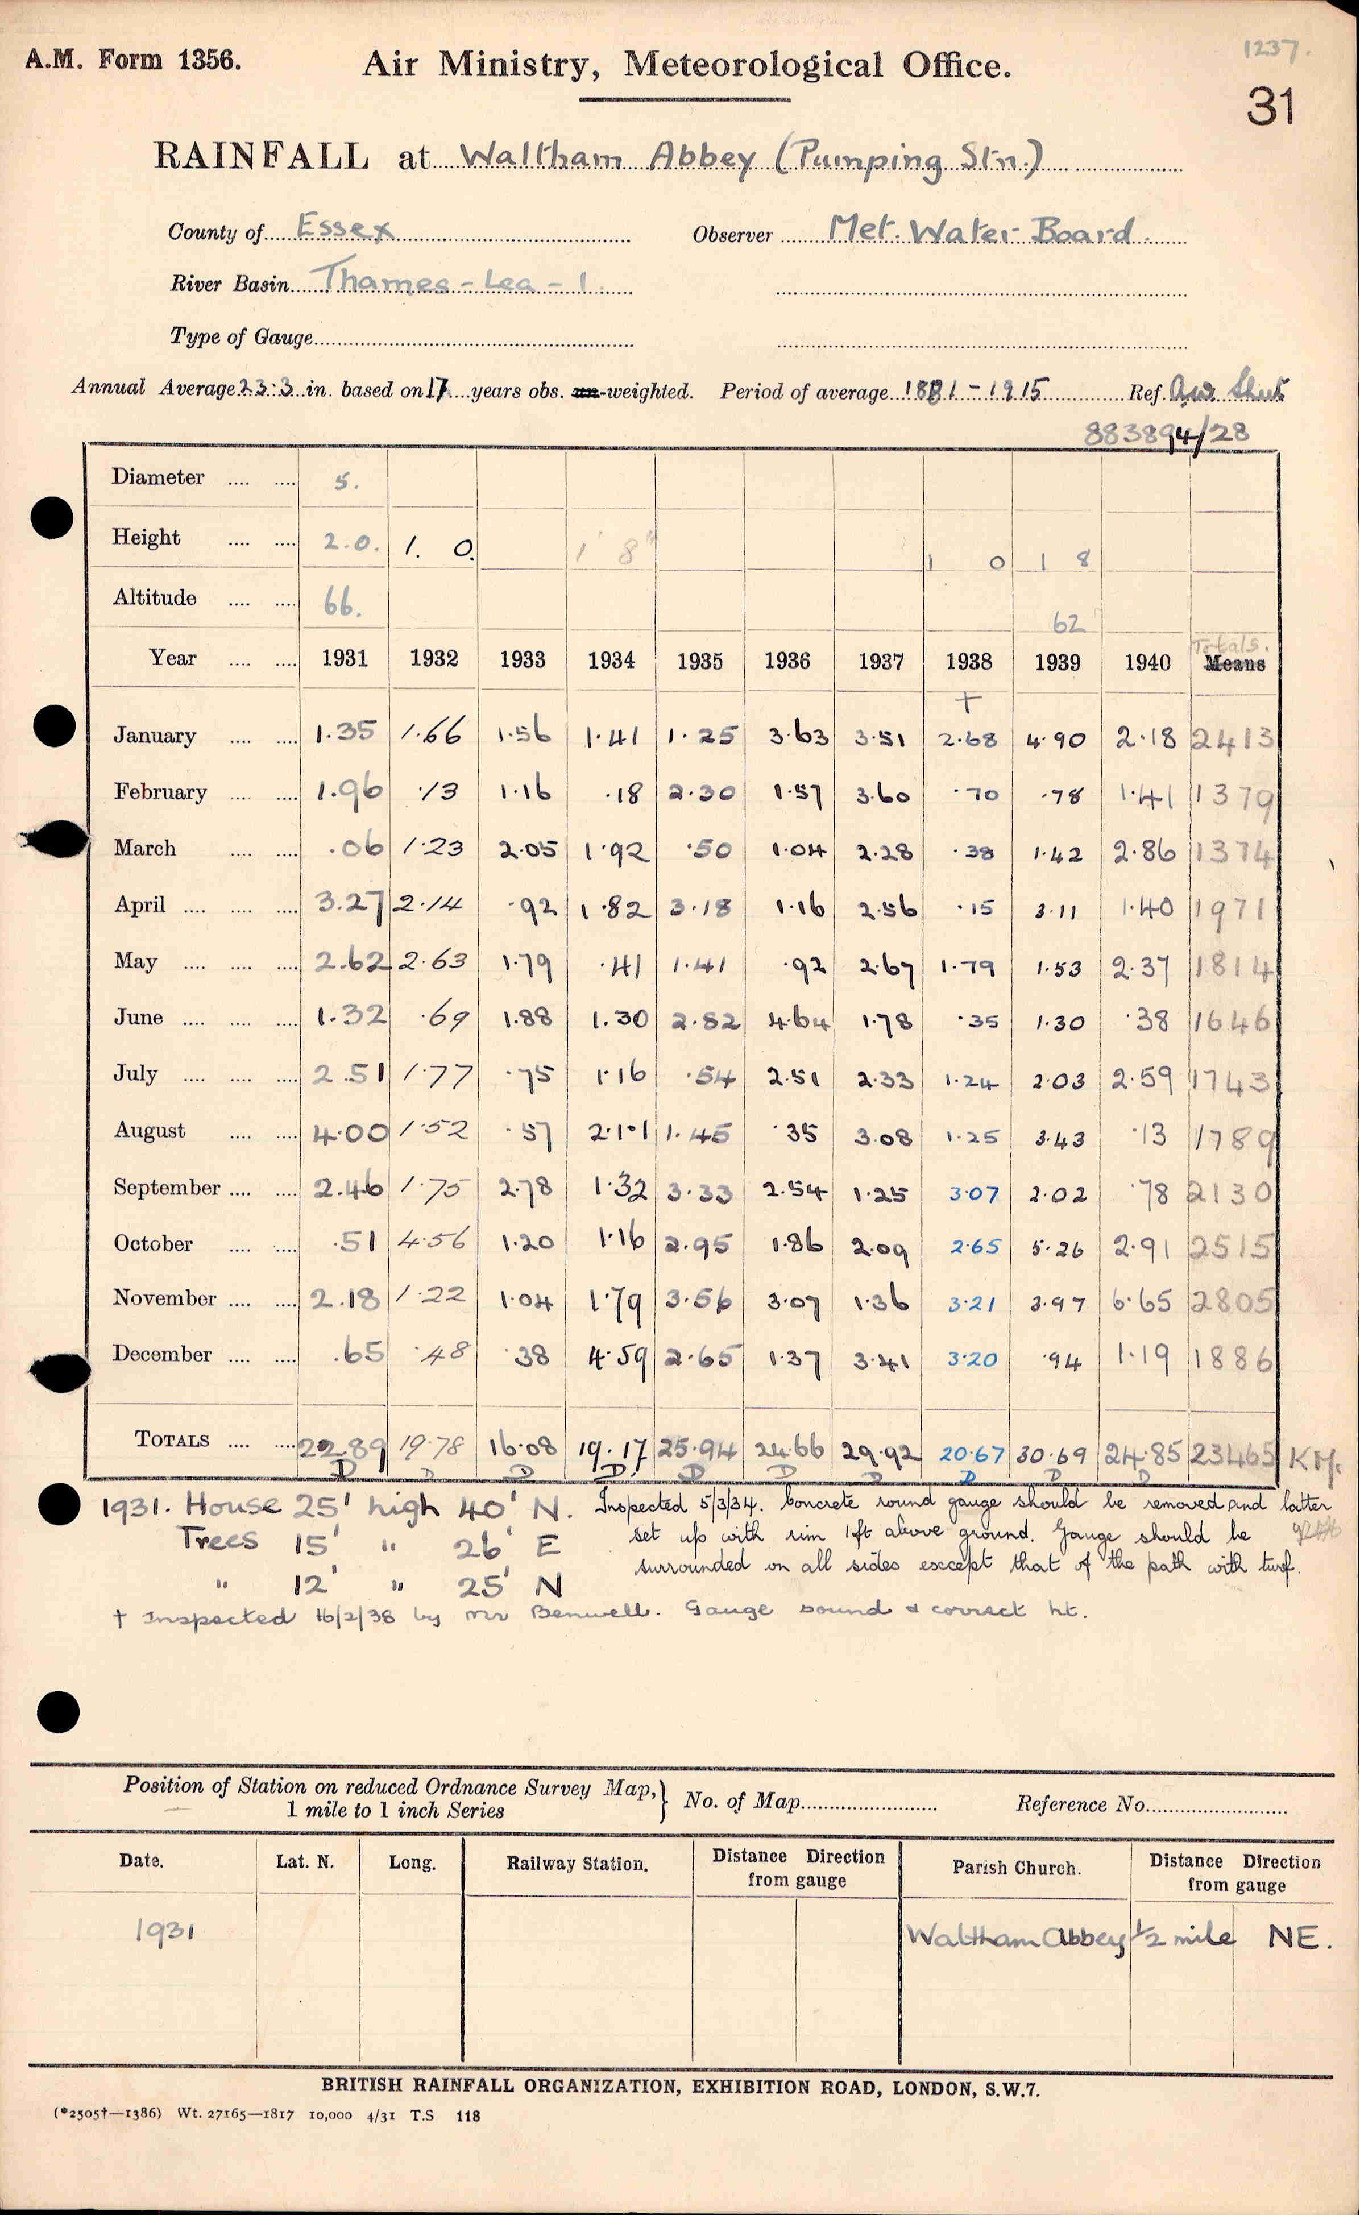 1237.
A.M. Form 1356. Air Ministry, Meteorological Office.
31
RAINFALL at Waltham Abbey (Pumping Stn.)
County of Essex Observer Met. Water Board.
River Basin Thames - Lea - 1.
Type of Gauge
Annual Average 23.3 in. based on 17 years obs. un-weighted. Period of average 1881 - 1915 Ref.
883894/28
Diameter 5.
Height 2.0. 1. 0. 1' 8" 1 0 1 8
Altitude 66. 62
Totals.
Year 1931 1932 1933 1934 1935 1936 1937 1938 1939 1940 Means
+
January 1.35 1.66 1.56 1.41 1.25 3.63 3.51 2.68 4.90 2.18 2413
February 1.96 .13 1.16 .18 2.30 1.57 3.60 .70 .78 1.41 1379
March .06 1.23 2.05 1.92 .50 1.04 2.28 .38 1.42 2.86 1374
April 3.27 2.14 .92 1.82 3.18 1.16 2.56 .15 3.11 1.40 1971
May 2.62 2.63 1.79 .41 1.41 .92 2.67 1.79 1.53 2.37 1814
June 1.32 .69 1.88 1.30 2.82 4.64 1.78 .35 1.30 .38 1646
July 2.51 1.77 .75 1.16 .54 2.51 2.33 1.24 2.03 2.59 1743
August 4.00 1.52 .57 2.11 1.45 .35 3.08 1.25 3.43 .13 1789
September 2.46 1.75 2.78 1.32 3.33 2.54 1.25 3.07 2.02 .78 2130
October .51 4.56 1.20 1.16 2.95 1.86 2.09 2.65 5.26 2.91 2515
November 2.18 1.22 1.04 1.79 3.56 3.07 1.36 3.21 3.97 6.65 2805
December .65 .48 .38 4.59 2.65 1.37 3.41 3.20 .94 1.19 1886
TOTALS 22.89 19.78 16.08 19.17 25.94 24.66 29.92 20.67 30.69 24.85 23465 KM.
D D D D D D D D D D
1931. House 25' high 40' N.
Trees 15' " 26' E
" 12' " 25' N
Inspected 5/3/34. Concrete round gauge should be removed and latter
set up with rim 1ft above ground. Gauge should be
surrounded on all sides except that of the path with turf.
† Inspected 16/2/38 by Mr Benwell. Gauge sound & correct ht.
Position of Station on reduced Ordnance Survey Map,} No. of Map Reference No.
1 mile to 1 inch Series
Date. Lat. N. Long. Railway Station. Distance Direction from gauge Parish Church. Distance Direction from gauge
1931 Waltham Abbey 1/2 mile NE.
BRITISH RAINFALL ORGANIZATION, EXHIBITION ROAD, LONDON, S.W.7.
(*2505†—1386) Wt. 27165—1817 10,000 4/31 T.S 118